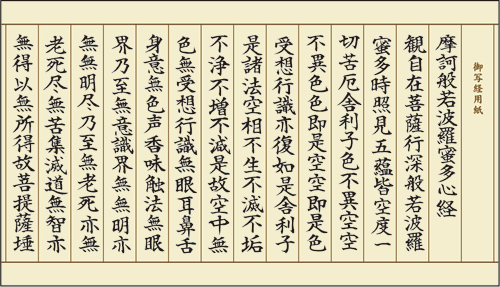 御写経用紙
摩訶般若波羅蜜多心経
観自在菩薩行深般若波羅
蜜多時照見五蘊皆空度一
切苦厄舎利子色不異空空
不異色色即是空空即是色
受想行識亦復如是舎利子
是諸法空相不生不滅不垢
不浄不増不減是故空中無
色無受想行識無眼耳鼻舌
身意無色声香味触法無眼
界乃至無意識界無無明亦
無無明尽乃至無老死亦無
老死尽無苦集滅道無智亦
無得以無所得故菩提薩埵